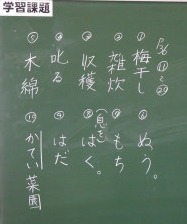 学習課題
P56 ⑪～⑳
① 梅干し
② 雑炊
③ 収穫
④ 叱る
⑤ 木綿
⑥ ぬう。
⑦ もち
⑧ (息を)はく。
⑨ はだ
⑩ かてい菜園